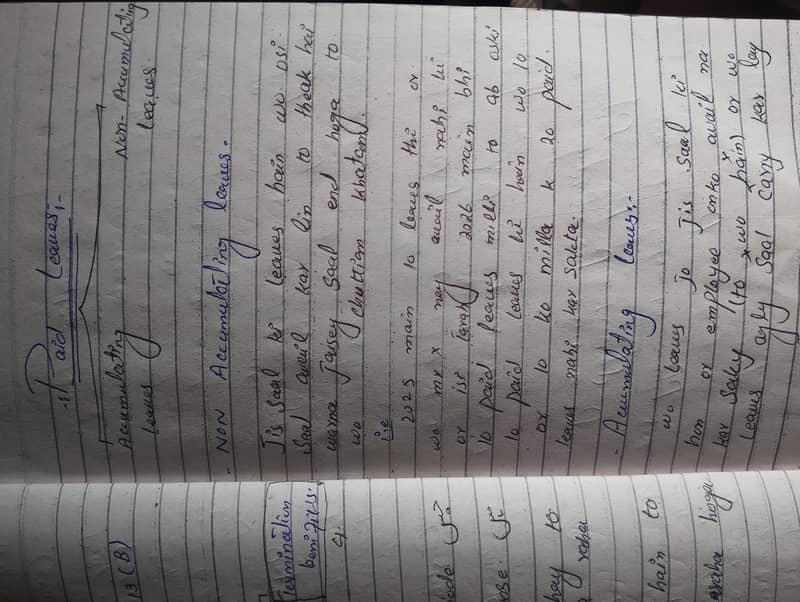 :- Paid Leaves:-
Accumulating Non-Accumulating
leaves leaves.
- NON Accumulating leaves.
Jis saal ki leaves hain wo osi
saal avail kar lin to theak hai
warna jaisey saal end hoga to
wo chuttian khatam.
i.e
2025 main 10 leaves thi or
wo mr x ney avail nahi ki
or isi tarah 2026 main bhi
10 paid leaves milli to ab oski
10 paid leaves hi hain wo 10
or 10 ko milla k 20 paid
leaves nahi kar sakta.
- Accumulating leaves:-
wo leaves jo jis saal ki
hon or employee onko avail na
kar sakey (to x wo x hain) or wo
leaves agly saal carry kar ley
13 (B)
Termination
benifits.
ode میں
ose. میں
hay to
raha
hain to
raha hoga